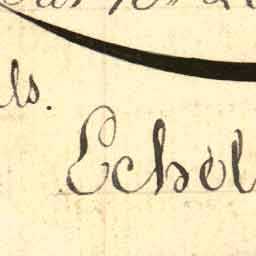 ls.
Echol